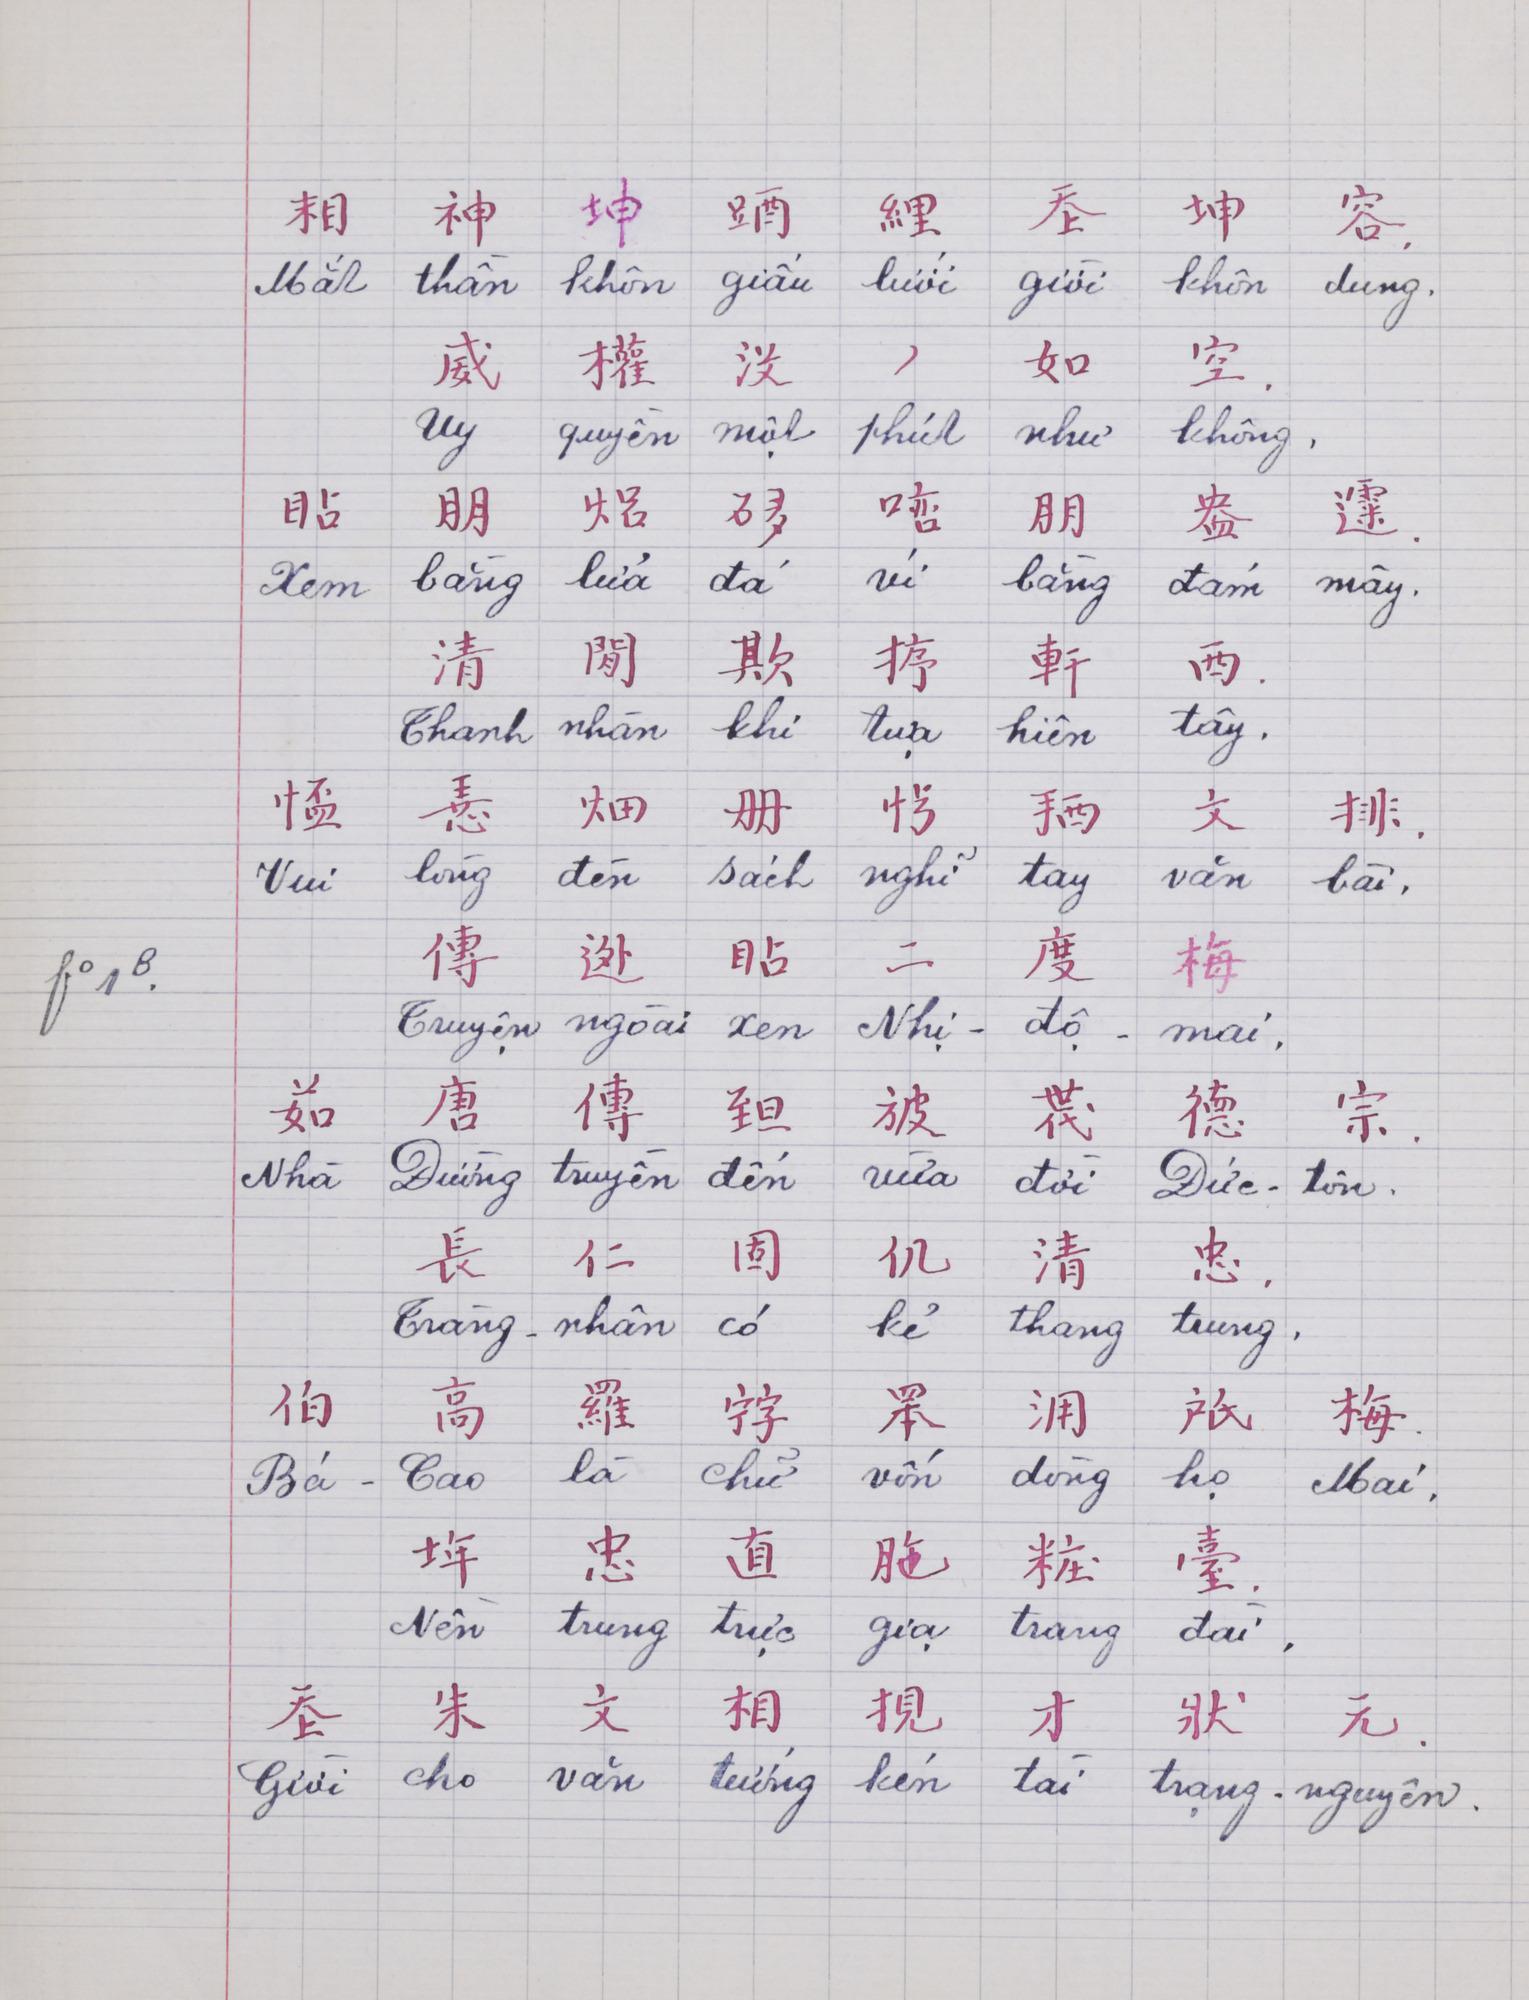 䀡神坤𨠲縺𡗶坤容.
Mắt thần khôn giấu lưới giời khôn dung.
威權没丿如空.
Uy quyền một phút như không.
䀡朋焒𥒥㗂朋盎䨺.
Xem bằng lửa đá ví bằng đám mây.
清閒欺㨋軒西.
Thanh nhàn khi tựa hiên tây.
𢝙𢚸畑册𢪀𢬣文排.
Vui lòng đèn sách nghỉ tay văn bài.
傳外䀡二度梅
Truyện ngoài xen Nhị-độ-mai.
茹唐傳𦤾𣃣𠁀德宗.
Nhà Đường truyền đến vừa đời Đức-tôn.
長仁固仉清忠.
Tràng-nhân có kẻ thang trung.
伯高羅𡨸罘㳥𢩜梅.
Bá-Cao là chữ vốn dòng họ Mai.
𡋂忠直䏧粧臺.
Nền trung trực giạ trang đài.
𡗶朱文相挸才狀元.
Giời cho văn tướng kén tài trạng-nguyên.
fº 1 B.